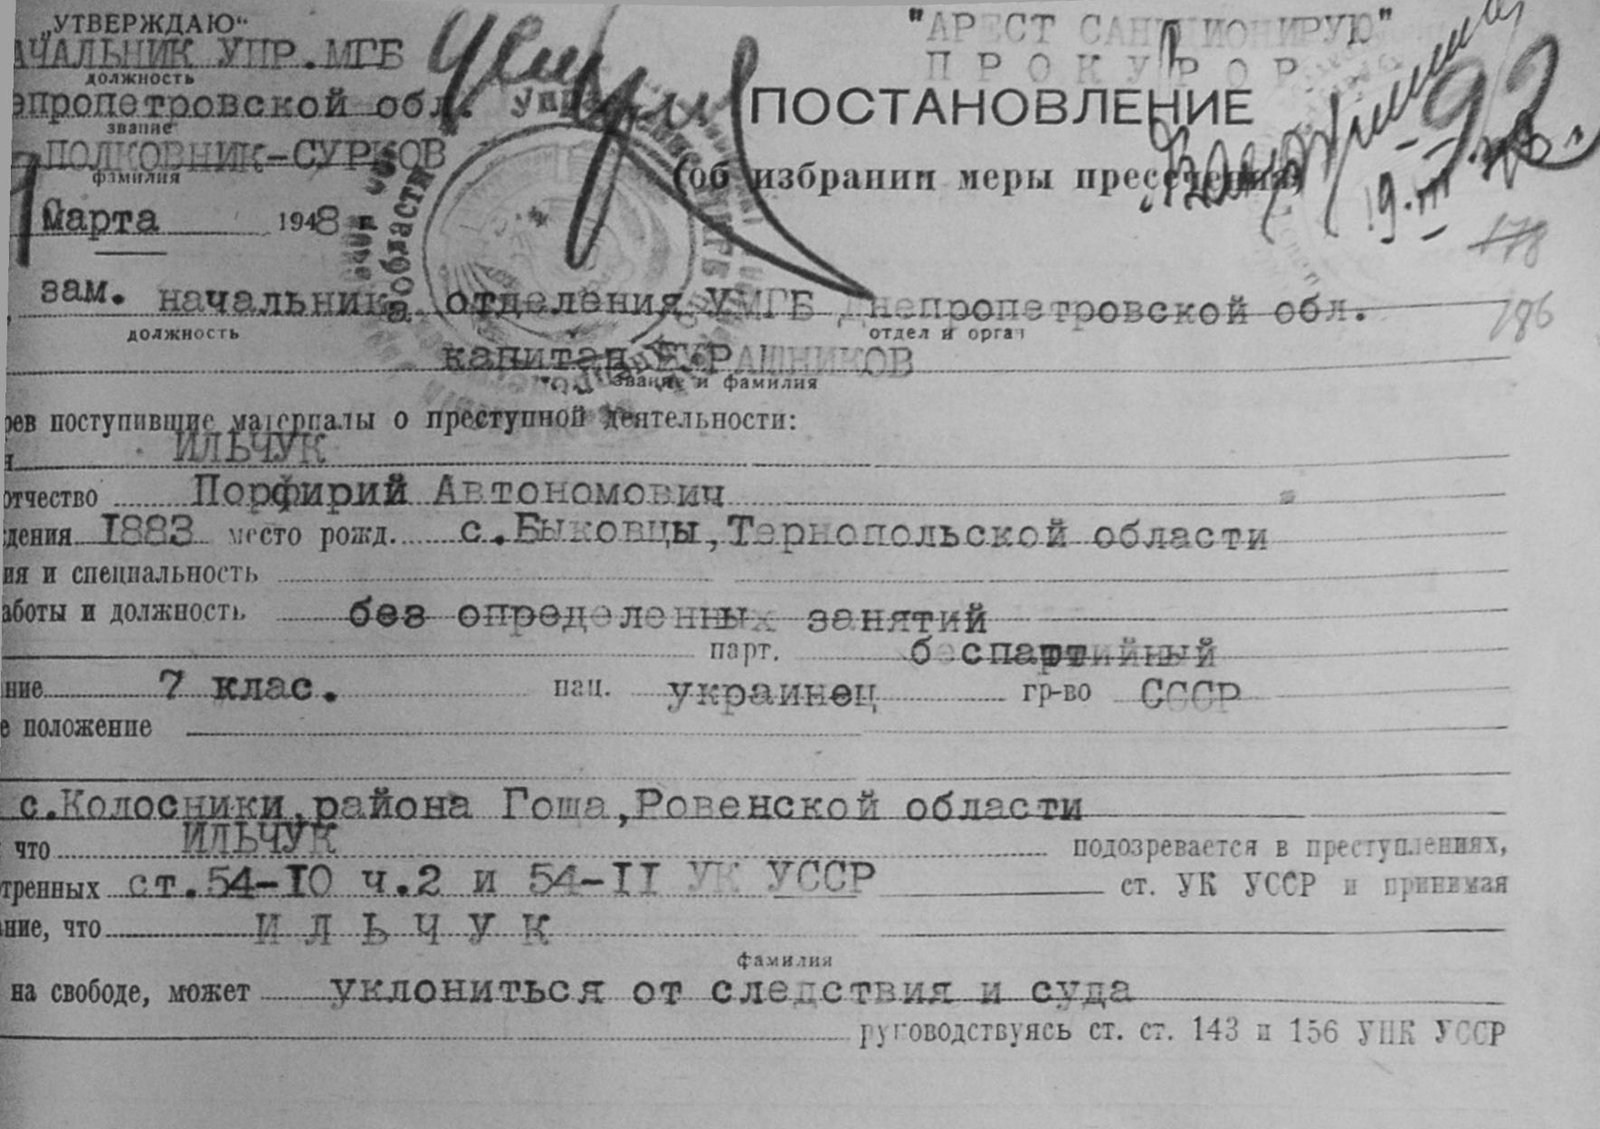 „УТВЕРЖДАЮ“
АЧАЛЬНИК УПР.МГБ
должность
епропетровской обл.
звание
ПОЛКОВНИК-СУРКОВ
фамилия
Марта 1948 г.
"АРЕСТ САНКЦИОНИРУЮ"
ПРОКУРОР
ПОСТАНОВЛЕНИЕ
(об избрании меры пресечения)
92
19-III-48 г.
178
186
зам. начальника отделения УМГБ Днепропетровской обл.
должность отдел и орган
капитан БУРАШНИКОВ
звание и фамилия
рев поступившие материалы о преступной деятельности:
я ИЛЬЧУК
отчество Порфирий Автономович
дения 1883 место рожд. с.Быковцы,Тернопольской области
ия и специальность
аботы и должность без определенных занятий
парт. беспартийный
ние 7 клас. нац. украинец гр-во СССР
е положение
с.Колосники,района Гоща,Ровенской области
что ИЛЬЧУК подозревается в преступлениях,
тренных ст.54-10 ч.2 и 54-11 УК УССР ст. УК УССР и принимая
ние, что ИЛЬЧУК
фамилия
на свободе, может уклониться от следствия и суда
руководствуясь ст. ст. 143 и 156 УПК УССР